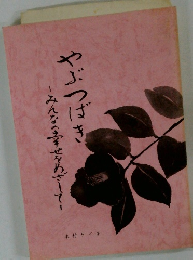 やぶつばき
～みんなの幸せをめざして～